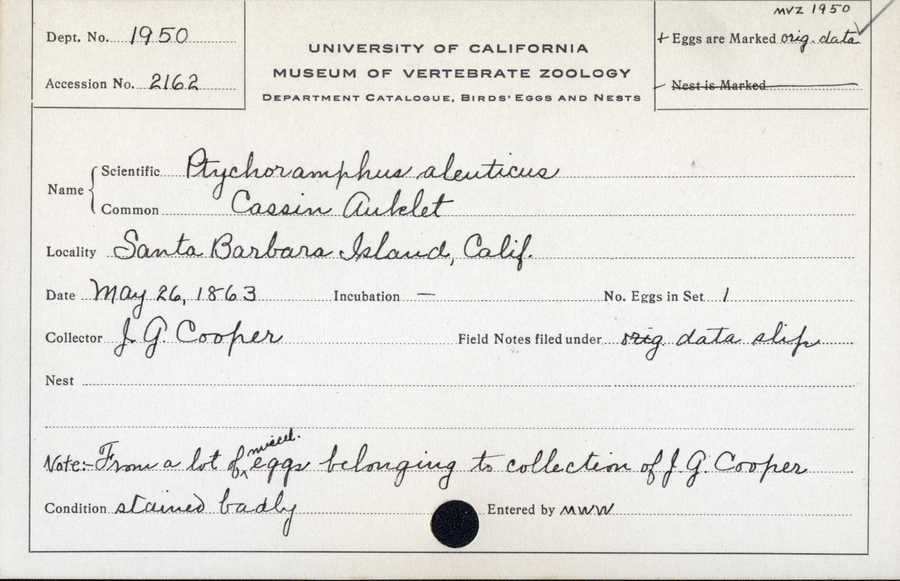 MVZ 1950
Dept. No. 1950
+ Eggs are Marked orig. data
UNIVERSITY OF CALIFORNIA
Accession No. 2162
MUSEUM OF VERTEBRATE ZOOLOGY
– Nest is Marked
DEPARTMENT CATALOGUE, BIRDS' EGGS AND NESTS
Name { Scientific Ptychoramphus aleuticus
Common Cassin Auklet
Locality Santa Barbara Island, Calif.
Date May 26, 1863 Incubation — No. Eggs in Set 1
Collector J. G. Cooper Field Notes filed under orig data slip
Nest
Note:- From a lot of miscel. eggs belonging to collection of J. G. Cooper
Condition stained badly Entered by MWW